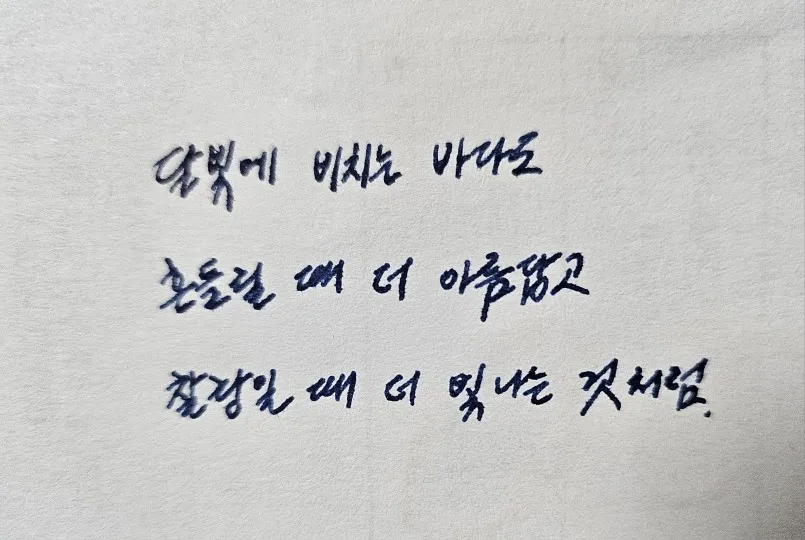 달빛에 비치는 바다도
흔들릴 때 더 아름답고
찰랑일 때 더 빛나는 것처럼.